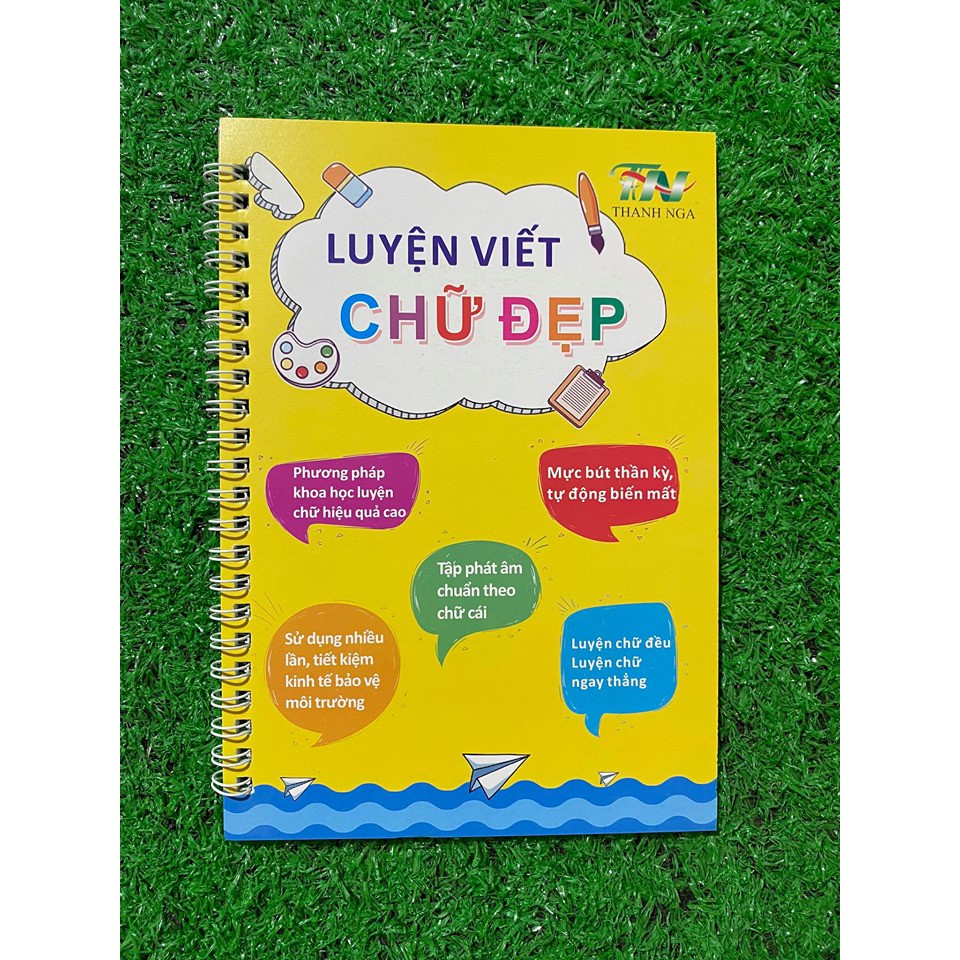 TN
THANH NGA
LUYỆN VIẾT
CHỮ ĐẸP
Phương pháp
khoa học luyện
chữ hiệu quả cao
Mực bút thần kỳ,
tự động biến mất
Tập phát âm
chuẩn theo
chữ cái
Sử dụng nhiều
lần, tiết kiệm
kinh tế bảo vệ
môi trường
Luyện chữ đều
Luyện chữ
ngay thẳng